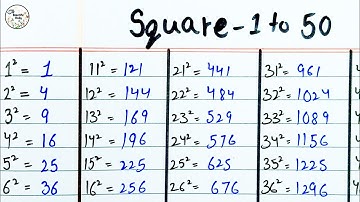 Square - 1 to 50
1² = 1 11² = 121 21² = 441 31² = 961
2² = 4 12² = 144 22² = 484 32² = 1024
3² = 9 13² = 169 23² = 529 33² = 1089
4² = 16 14² = 196 24² = 576 34² = 1156
5² = 25 15² = 225 25² = 625 35² = 1225
6² = 36 16² = 256 26² = 676 36² = 1296